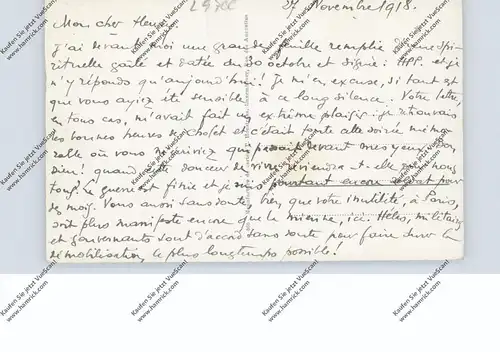 27 Novembre 1918.
Mon cher Henry
J'ai devant moi une grande feuille remplie d'une spi-
rituelle gaîté et datée du 30 octobre et signée: HPP. et je
n'y réponds qu'aujourd'hui! Je m'en excuse, si tant est
que vous ayiez été sensible à ce long silence. Votre lettre,
en tous cas, m'avait fait un extrême plaisir: je retrouvais
les bonnes heures de Cholet et c'était toute une soirée mémo-
rable où vous que passait devant mes yeux. Mon
Dieu! quand cette douceur de vivre reviendra-t-elle pour nous
tous? La guerre est finie et je suis pourtant encore soldat pour
des mois. Vous aussi sans doute, bien que votre inutilité, à Paris,
soit plus manifeste encore que la mienne, ici. Hélas, militaires
et gouvernants sont d'accord sans doute pour faire durer la
démobilisation, le plus longtemps possible!
Kaufen Sie jetzt VueScan!
www.hamrick.com